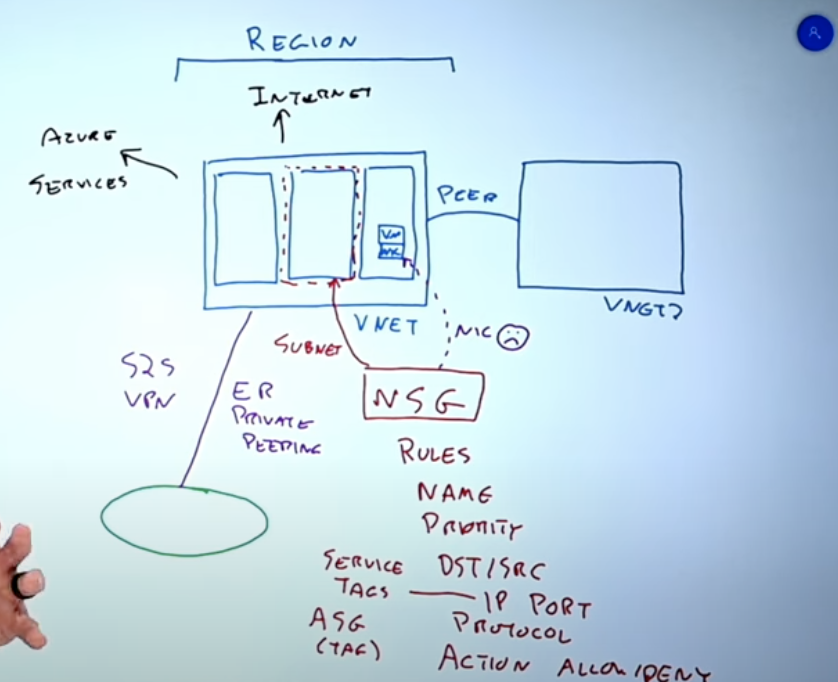 REGION
INTERNET
AZURE
SERVICES
PEER
VM
NIC
VNET
VNET2
SUBNET
NIC
S2S
VPN
ER
PRIVATE
PEERING
NSG
RULES
NAME
PRIORITY
SERVICE
TAGS
DST/SRC
IP PORT
ASG
(TAG)
PROTOCOL
ACTION ALLOW/DENY